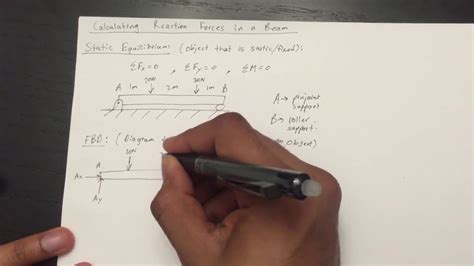 Calculating Reaction Forces in a Beam
Static Equilibrium: (object that is static/fixed):
ΣFx=0 , ΣFy=0 , ΣM=0
20N 20N
A 1m 2m 1m B
A → pinjoint support
B → roller support.
FBD: (Diagram object)
20N
A
Ax
Ay